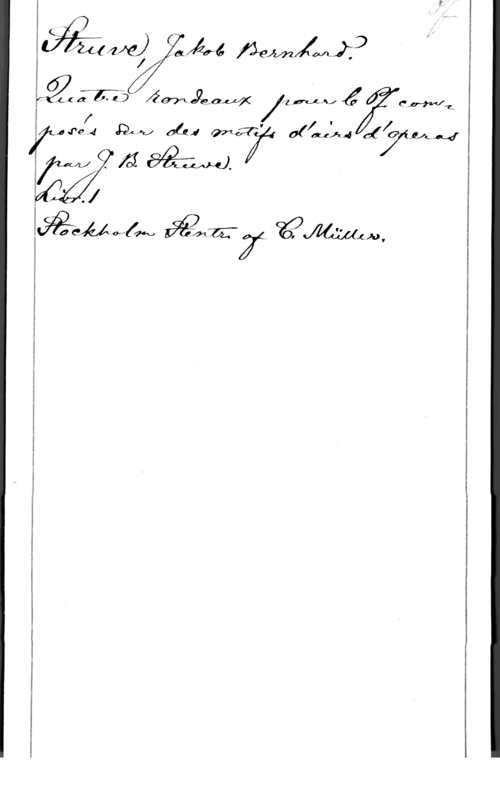 Struve, Jakob Bernhard.
Quatre rondeaux pour le Pf com-
posés sur des motifs d'airs d'operas
par J. B. Struve.
Livr. 1
Stockholm Stentr. af C. Müller.